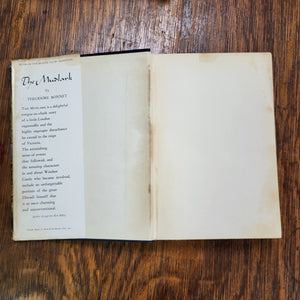 The Mudlark
by
THEODORE BONNET
THE MUDLARK is a delightful
tongue-in-cheek story
of a little London
ragamuffin and the
highly improper disturbance
he caused in the reign
of Victoria.
The astonishing
series of events
that followed, and
the amazing characters
in and about Windsor
Castle who became involved,
include an unforgettable
portrait of the great
Disraeli himself that
is at once charming
and unconventional.